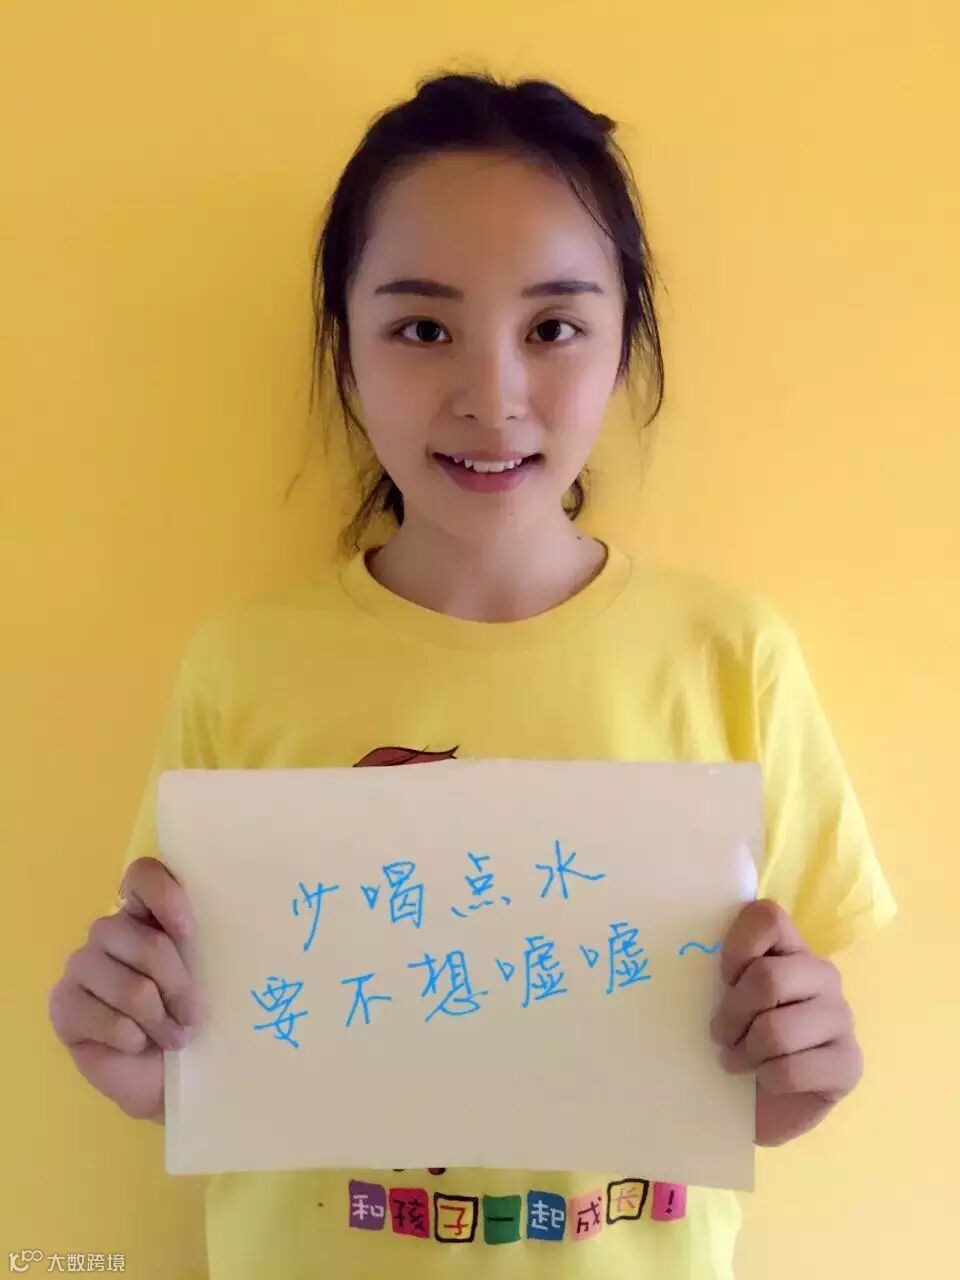 少喝点水
要不想嘘嘘~
和孩子一起成长!
大数跨境